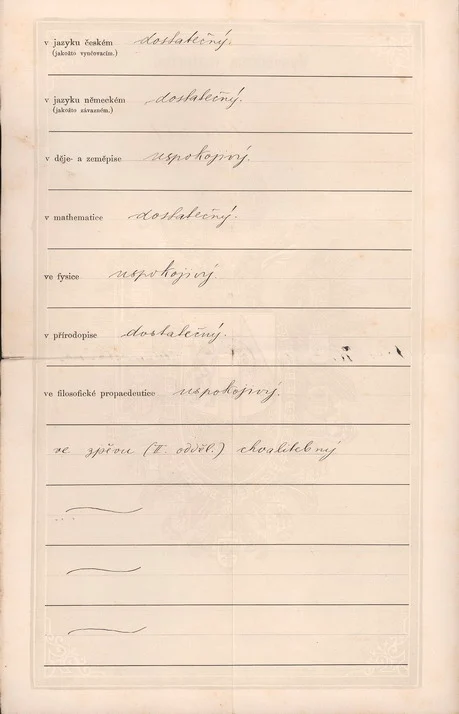 v jazyku českém dostatečný.
(jakožto vyučovacím.)
v jazyku německém dostatečný.
(jakožto závazném.)
v děje- a zeměpise uspokojivý.
v mathematice dostatečný.
ve fysice uspokojivý.
v přírodopise dostatečný.
ve filosofické propaedeutice uspokojivý.
ve zpěvu (II. odděl.) chvalitebný